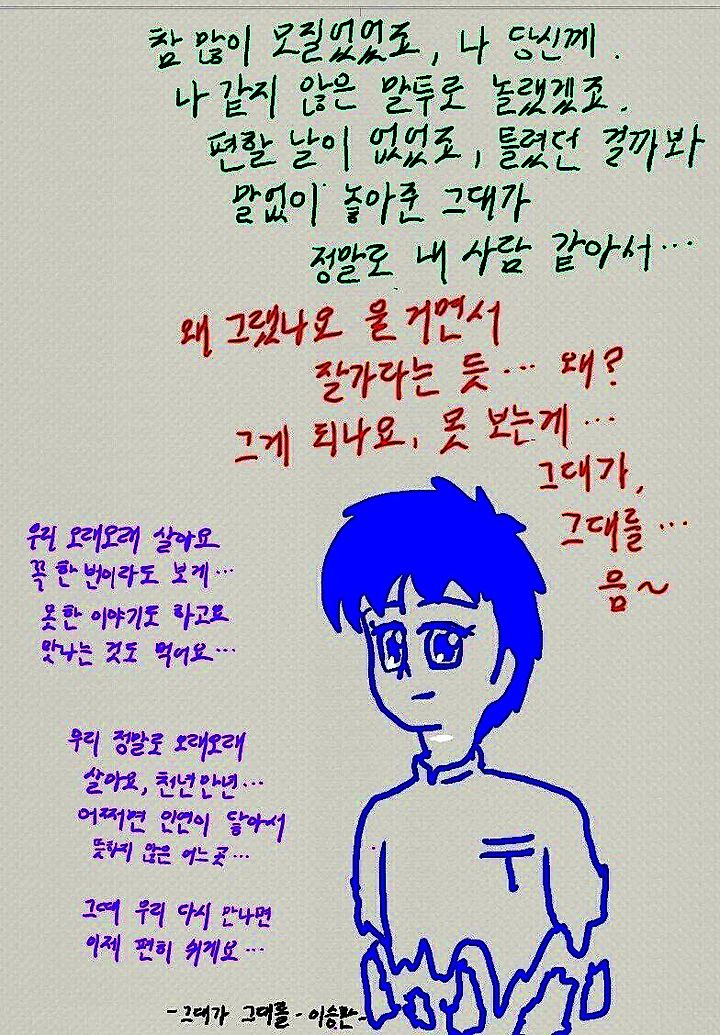 참 많이 모질었었죠, 나 당신께.
나 같지 않은 말투로 놀랬겠죠.
편할 날이 없었죠, 틀렸던 걸까봐
말없이 놓아준 그대가
정말로 내 사람 같아서…
왜 그랬나요 울 거면서
잘가라는 듯… 왜?
그게 되나요, 못 보는게…
그대가,
그대를…
음~
우린 오래오래 살아요
꼭 한 번이라도 보게…
못한 이야기도 하고요
맛나는 것도 먹어요…
우리 정말로 오래오래
살아요, 천년만년…
어쩌면 인연이 닿아서
뜻하지 않은 어느 곳…
그때 우리 다시 만나면
이제 편히 쉬게요…
-그대가 그대를-이승환-